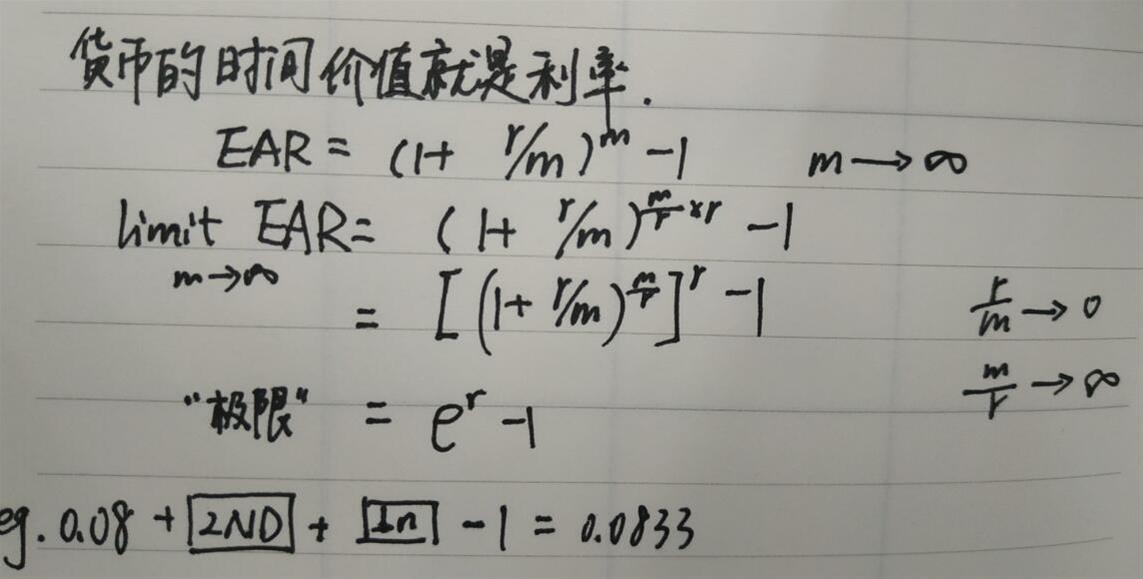 货币的时间价值就是利率.
EAR = (1+ r/m)^m -1    m→∞
limit EAR= (1+ r/m)^(m/r ×r) -1
m→∞
= [(1+ r/m)^(m/r)]^r -1    r/m → 0
m/r → ∞
"极限" = e^r -1
eg. 0.08 + 2ND + Ln -1 = 0.0833